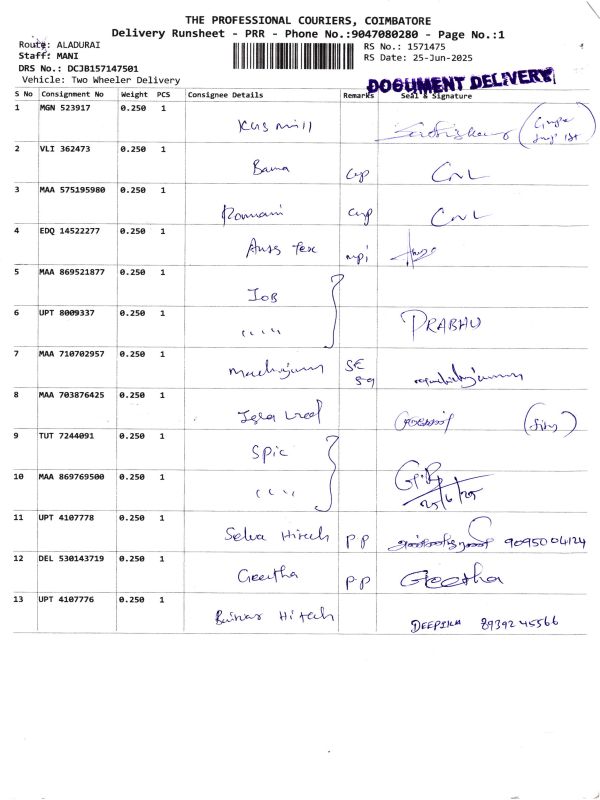 THE PROFESSIONAL COURIERS, COIMBATORE
Delivery Runsheet - PRR - Phone No.:9047080280 - Page No.:1
Route: ALADURAI
RS No.: 1571475
Staff: MANI
RS Date: 25-Jun-2025
DRS No.: DCJB157147501
Vehicle: Two Wheeler Delivery
DOCUMENT DELIVERY
S No Consignment No Weight PCS Consignee Details Remarks Seal & Signature
1 MGN 523917 0.250 1
Kus mill
2 VLI 362473 0.250 1
Bama
3 MAA 575195980 0.250 1
Romani
4 EDQ 14522277 0.250 1
Anss Tex
5 MAA 869521877 0.250 1
IOB
6 UPT 8009337 0.250 1
,, ,, PRABHU
7 MAA 710702957 0.250 1
SE
8 MAA 703876425 0.250 1
9 TUT 7244091 0.250 1
Spic
10 MAA 869769500 0.250 1
,, ,, 25/6/25
11 UPT 4107778 0.250 1
Selva Hitech PP 9095004124
12 DEL 530143719 0.250 1
Geetha PP Geetha
13 UPT 4107776 0.250 1
Hitech DEEPIKA 8939245566